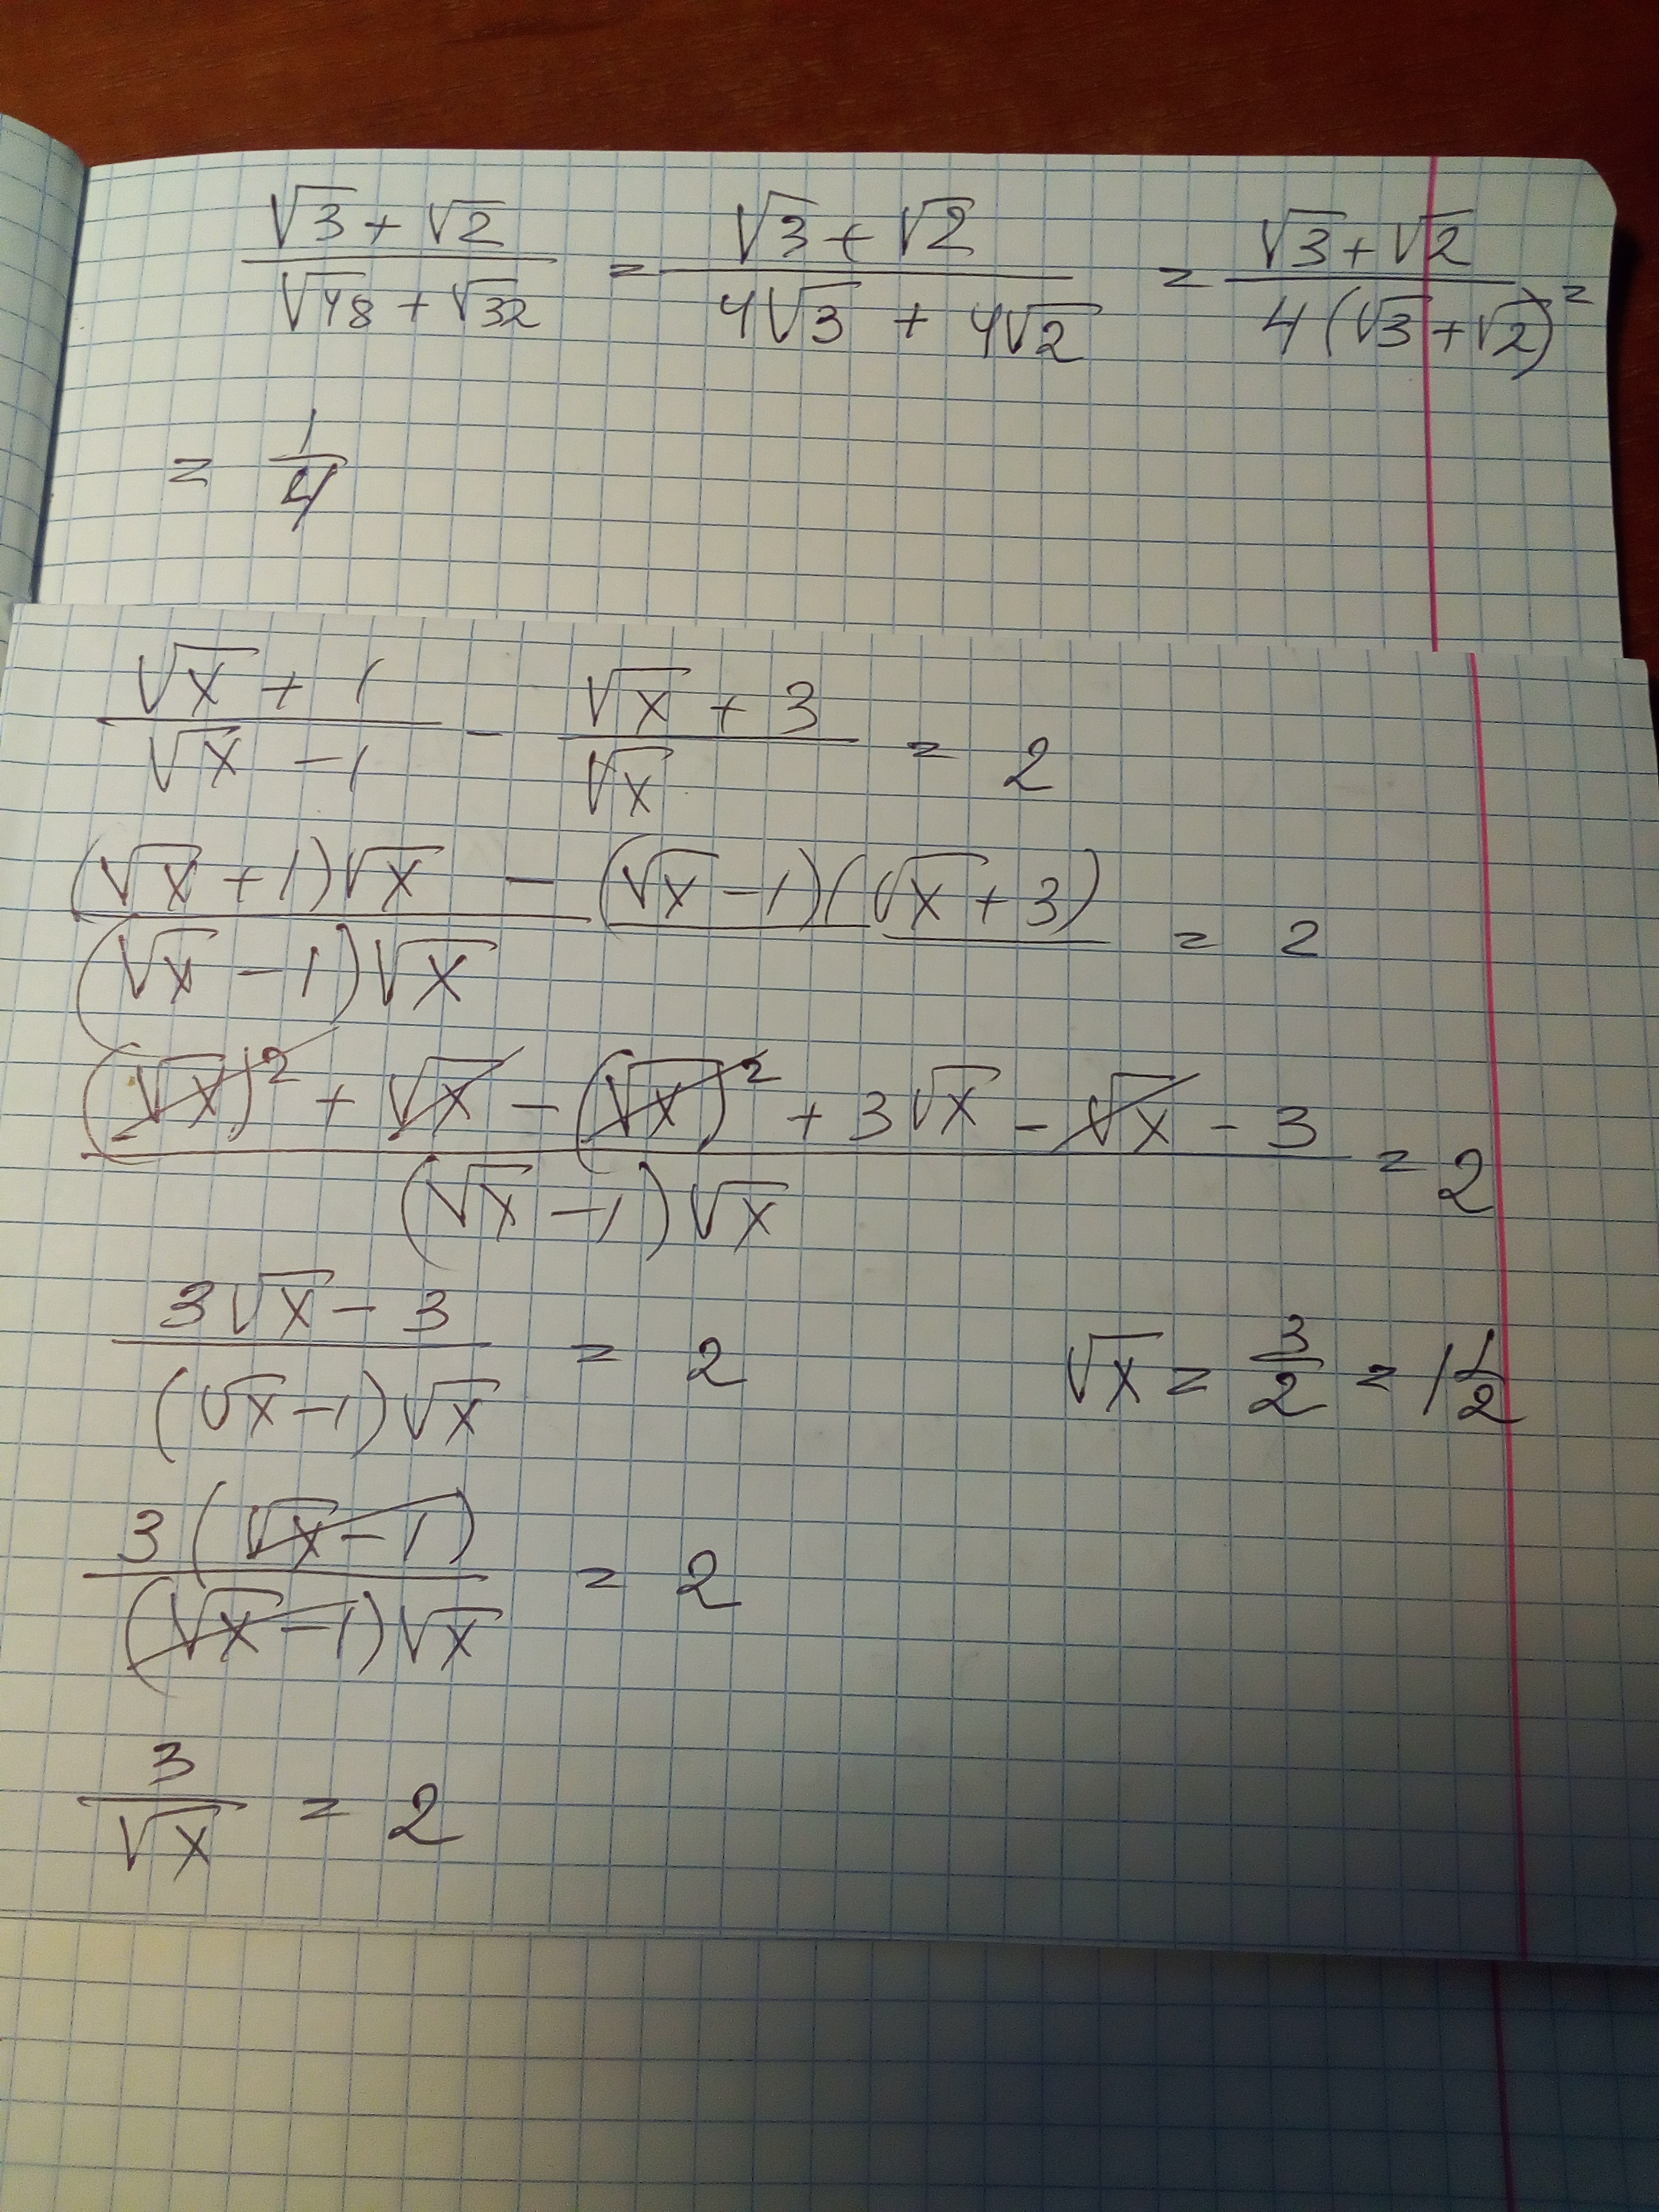 (√3 + √2)/(√48 + √32) = (√3 + √2)/(4√3 + 4√2) = (√3 + √2)/(4(√3 + √2)) =
= 1/4
(√x + 1)/(√x − 1) − (√x + 3)/√x = 2
((√x + 1)√x − (√x − 1)(√x + 3))/((√x − 1)√x) = 2
((√x)² + √x − (√x)² + 3√x − √x − 3)/((√x − 1)√x) = 2
(3√x − 3)/((√x − 1)√x) = 2
√x = 3/2 = 1 1/2
3(√x − 1)/((√x − 1)√x) = 2
3/√x = 2